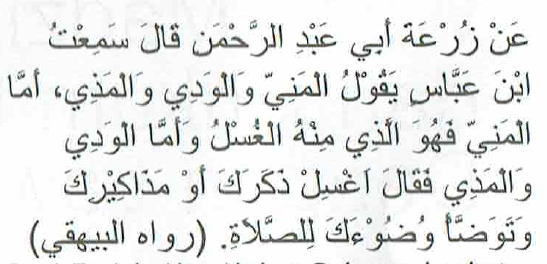 عَنْ زُرْعَة أبي عَبْدِ الرَّحْمَن قالَ سَمِعْتُ
ابْنَ عَبَّاسٍ يَقُوْلُ الْمَنِيّ وَالْوَدِي وَالْمَذِي، أمَّا
الْمَنِيّ فَهُوَ الَّذِي مِنْهُ الْغُسْلُ وَأمَّا الوَدِي
وَالْمَذِي فَقالَ اَغْسِلْ ذَكَرَكَ أوْ مَذَاكِيْرِكَ
وَتَوَضَّأ وُضُوْءَكَ لِلصَّلَاةِ. (رواه البيهقي)